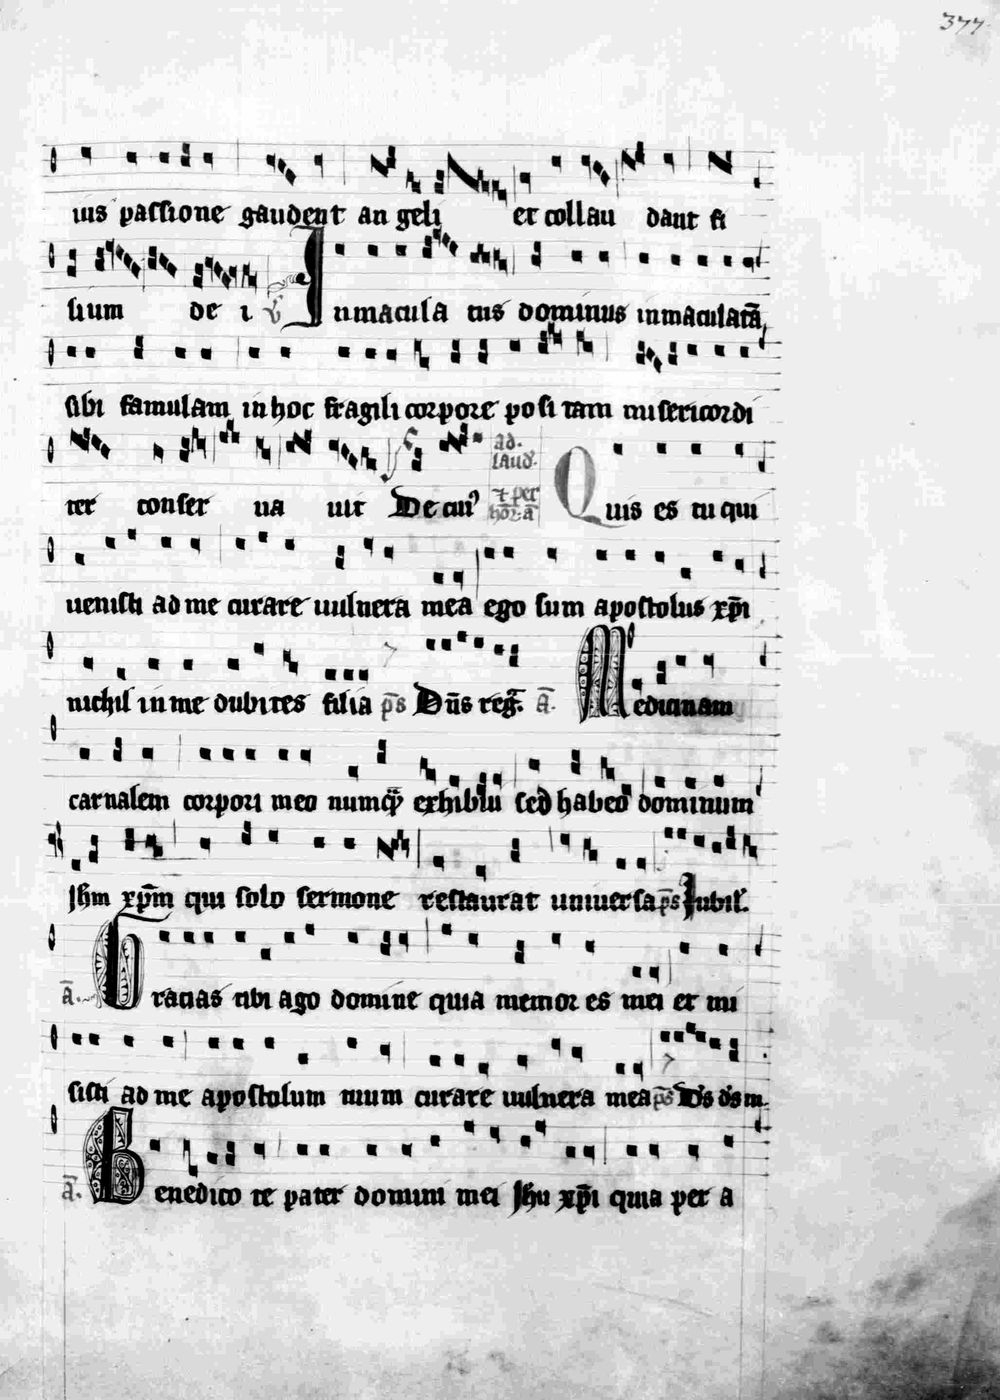 377
ius passione gaudent an geli et collau dant fi
lium de i ℣ Inmacula tus dominus inmaculatā
sibi famulam in hoc fragili corpore posi tam misericordi
ter conser ua uit De cuiꝰ ad. laud. ⁊ per hōr. ā Quis es tu qui
uenisti ad me curare uulnera mea ego sum apostolus xp̄i
nichil in me dubites filia p̄s Dn̄s reḡ. ā. Medicinam
carnalem corpori meo numqͣ exhibui sed habeo dominum
Jhm xp̄m qui solo sermone restaurat uniuersa p̄s Jubil.
ā. Gracias tibi ago domine quia memor es mei et mi
sisti ad me apostolum tuum curare uulnera mea p̄s Ds ds m.
ā. Benedico te pater domini mei Jhu xp̄i quia per a